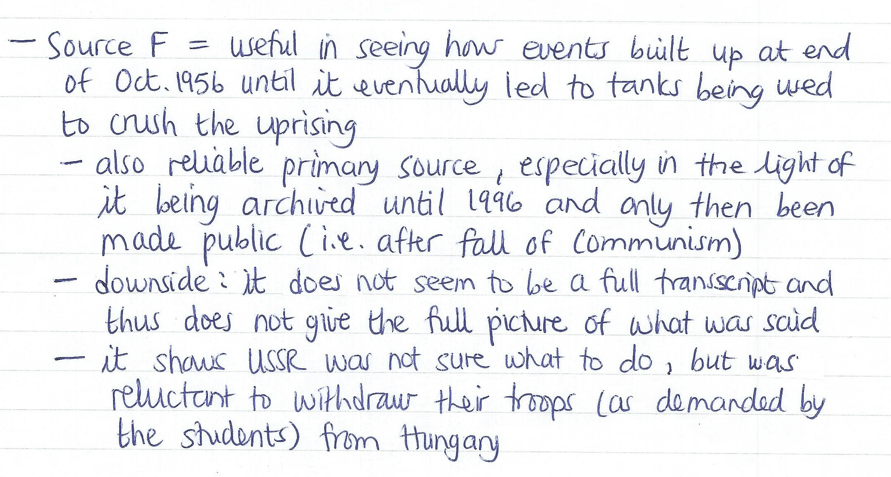 — Source F = useful in seeing how events built up at end
of Oct. 1956 until it eventually led to tanks being used
to crush the uprising
— also reliable primary source, especially in the light of
it being archived until 1996 and only then been
made public (i.e. after fall of Communism)
— downside: it does not seem to be a full transscript and
thus does not give the full picture of what was said
— it shows USSR was not sure what to do, but was
reluctant to withdraw their troops (as demanded by
the students) from Hungary